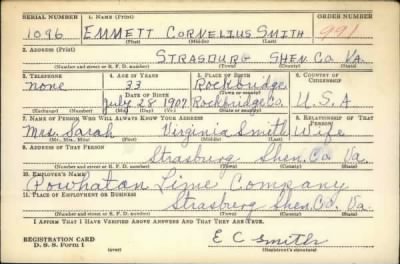 SERIAL NUMBER 1. NAME (Print) ORDER NUMBER
1096 EMMETT CORNELIUS SMITH 991
(First) (Middle) (Last)
2. ADDRESS (Print)
STRASBURG SHEN. CO. VA.
(Number and street or R. F. D. number) (Town) (County) (State)
3. TELEPHONE 4. AGE IN YEARS 5. PLACE OF BIRTH 6. COUNTRY OF CITIZENSHIP
none 33 Rockbridge
DATE OF BIRTH (Town or county)
July 28 1907 Rockbridge Co. U.S.A
(Exchange) (Number) (Mo.) (Day) (Yr.) (State or country)
7. NAME OF PERSON WHO WILL ALWAYS KNOW YOUR ADDRESS 8. RELATIONSHIP OF THAT PERSON
Mrs. Sarah Virginia Smith Wife
(Mr., Mrs., Miss) (First) (Middle) (Last)
9. ADDRESS OF THAT PERSON
Strasburg Shen. Co. Va.
(Number and street or R. F. D. number) (Town) (County) (State)
10. EMPLOYER'S NAME
Powhatan Lime Company
11. PLACE OF EMPLOYMENT OR BUSINESS
Strasburg Shen. Co. Va.
(Number and street or R. F. D. number) (Town) (County) (State)
I AFFIRM THAT I HAVE VERIFIED ABOVE ANSWERS AND THAT THEY ARE TRUE.
REGISTRATION CARD
D. S. S. Form 1 (over) E C Smith
(Signature)